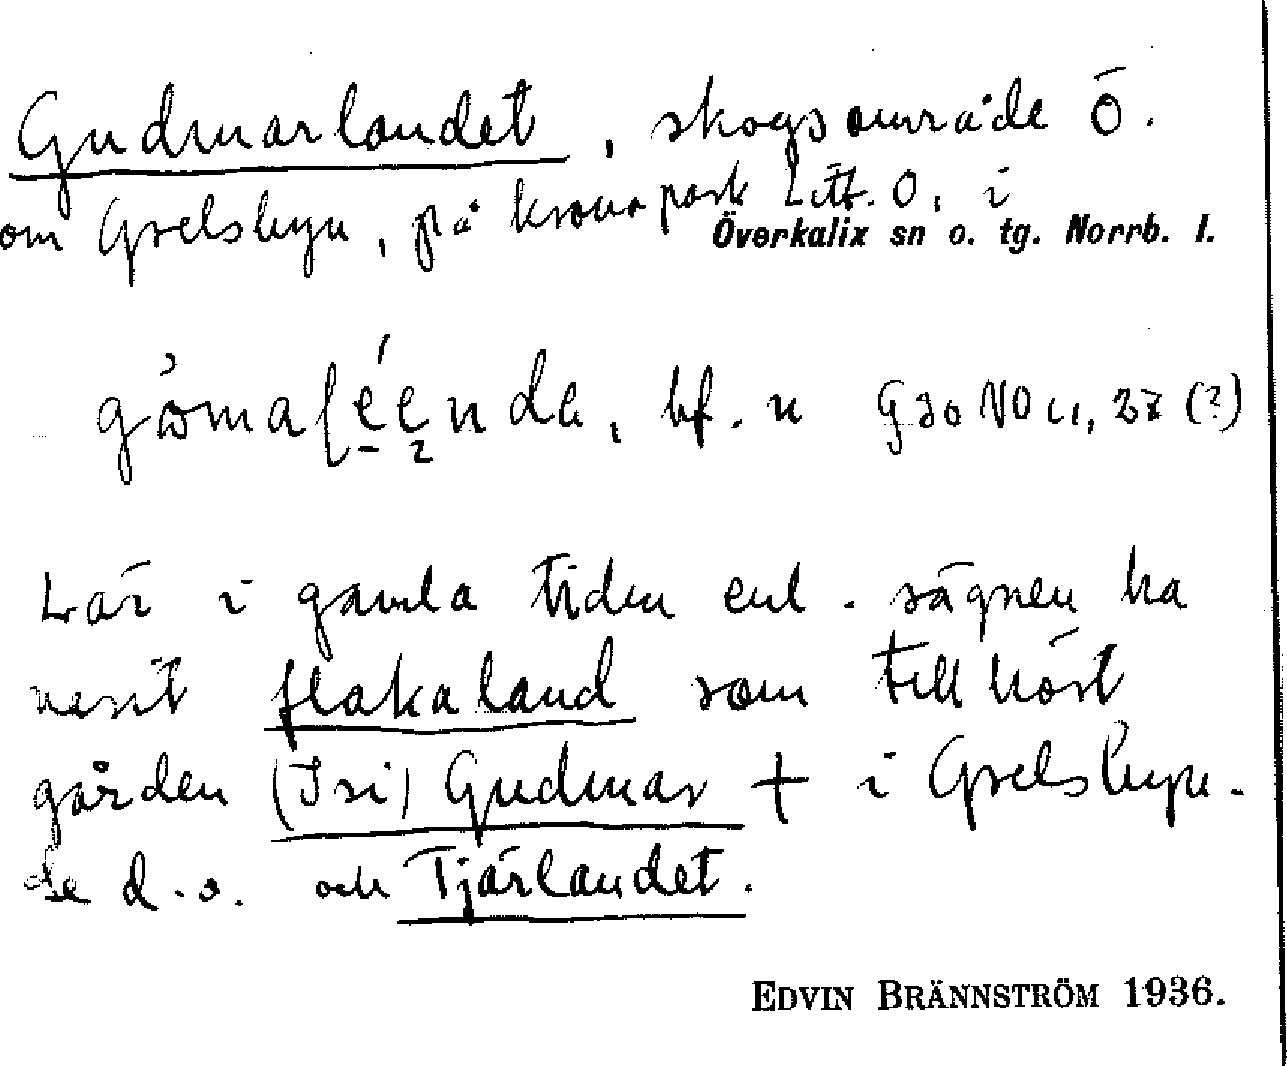 Gudmarlandet, skogsområde Ö.
om Grelsbyn, på kronopark Litt. O, i
Överkalix sn o. tg. Norrb. l.
bf. n G 30 NO u, 27 (?)
Lär i gamla tiden enl. sägnen ha
varit flakaland som tillhört
gården (Isi) Gudmar + i Grelsbyn.
Se d.o. och Tjärlandet.
EDVIN BRÄNNSTRÖM 1936.